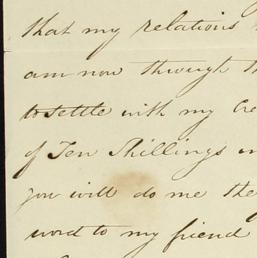 that my relations
am now through
to settle with my
of Ten Shillings
you will do me the
word to my friend